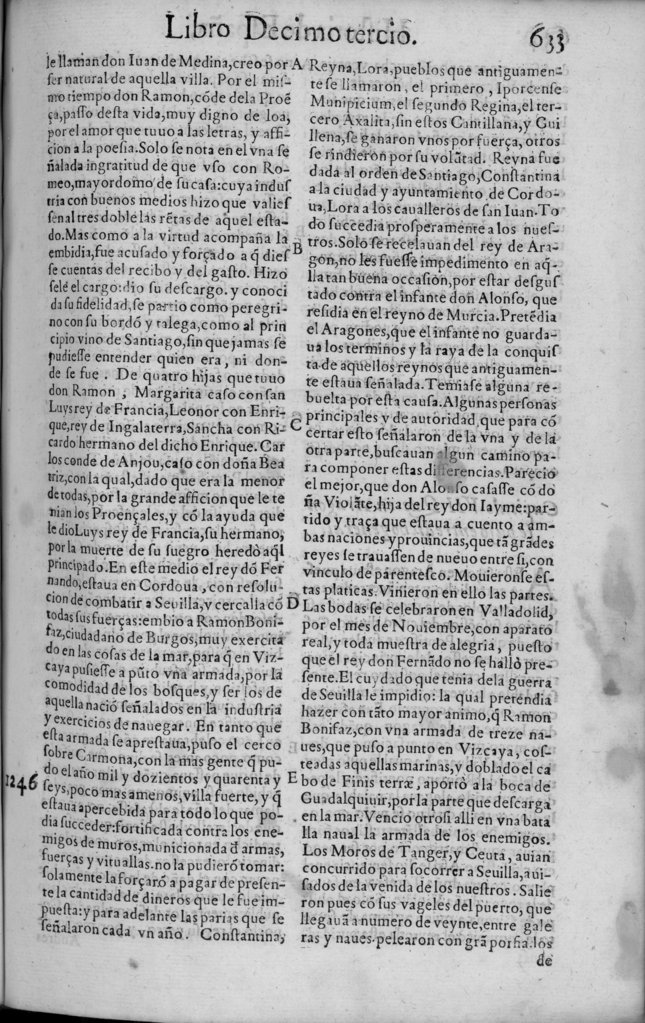 Libro Decimotercio.
633
le llaman don Iuan de Medina, creo por
ser natural de aquella villa. Por el mis-
mo tiempo don Ramon, cõde dela Proẽ
ça, passo desta vida, muy digno de loa,
por el amor que tuuo a las letras, y affi-
cion a la poesia. Solo se nota en el vna se
ñalada ingratitud de que vso con Ro-
meo, mayordomo de su casa: cuya indus
tria con buenos medios hizo que valies
sen al tres doble las rẽtas de aquel esta-
do. Mas como a la virtud acompaña la
embidia, fue acusado y forçado a q̃ dies
se cuentas del recibo y del gasto. Hizo
sele el cargo: dio su descargo. y conoci
da su fidelidad, se partio como peregri-
no con su bordõ y talega, como al prin
cipio vino de Santiago, sin que jamas se
pudiesse entender quien era, ni don-
de se fue. De quatro hijas que tuuo
don Ramon, Margarita caso con san
Luys rey de Francia, Leonor con Enri-
que, rey de Ingalaterra, Sancha con Ri-
cardo hermano del dicho Enrique. Car
los conde de Anjou, caso con doña Bea
triz, con la qual, dado que era la menor
de todas, por la grande afficion que le te
nian los Proençales, y cõ la ayuda que
le dio Luys rey de Francia, su hermano,
por la muerte de su suegro heredò aq̃l
principado. En este medio el rey dõ Fer
nando, estaua en Cordoua, con resolu-
cion de combatir a Seuilla, y cercalla cõ
todas sus fuerças: embio a Ramon Boni-
faz, ciudadano de Burgos, muy exercita
do en las cosas de la mar, para q̃ en Viz-
caya pusiesse a pũto vna armada, por la
comodidad de los bosques, y ser los de
aquella naciõ señalados en la industria
y exercicios de nauegar. En tanto que
esta armada se aprestaua, puso el cerco
sobre Carmona, con la mas gente q̃ pu-
do el año mil y dozientos y quarenta y
1246
seys, poco mas a menos, villa fuerte, y q̃
estaua apercebida para todo lo que po-
dia succeder: fortificada contra los ene-
migos de muros, municionada d̃ armas,
fuerças y vituallas. no la pudierõ tomar:
solamente la forçarõ a pagar de presen-
te la cantidad de dineros que le fue im-
puesta: y para adelante las parias que se
señalaron cada vn año. Constantina,
A
B
C
D
E
Reyna, Lora, pueblos que antiguamen-
te se llamaron, el primero, Iporcense
Munipicium, el segundo Regina, el ter-
cero Axalita, sin estos Cantillana, y Gui
llena, se ganaron vnos por fuerça, otros
se rindieron por su volũtad. Reyna fue
dada al orden de Santiago, Constantina
a la ciudad y ayuntamiento de Cordo-
ua, Lora a los caualleros de san Iuan. To
do succedia prosperamente a los nues-
tros. Solo se recelauan del rey de Ara-
gon, no les fuesse impedimento en aq̃-
lla tan buena occasion, por estar desgus
tado contra el infante don Alonso, que
residia en el reyno de Murcia. Pretẽdia
el Aragones, que el infante no guarda-
ua los terminos y la raya de la conquis
ta de aquellos reynos que antiguamen-
te estaua señalada. Temiase alguna re-
buelta por esta causa. Algunas personas
principales y de autoridad, que para cõ
certar esto señalaron de la vna y de la
otra parte, buscauan algun camino pa-
ra componer estas differencias. Parecio
el mejor, que don Alonso casasse cõ do
ña Violãte, hija del rey don Iayme: par-
tido y traça que estaua a cuento a am-
bas naciones y prouincias, que tã grãdes
reyes se trauassen de nueuo entre si, con
vinculo de parentesco. Mouieronse es-
tas platicas. Vinieron en ello las partes.
Las bodas se celebraron en Valladolid,
por el mes de Nouiembre, con aparato
real, y toda muestra de alegria, puesto
que el rey don Fernãdo no se hallò pre-
sente. El cuydado que tenia de la guerra
de Seuilla le impidio: la qual pretendia
hazer con tãto mayor animo, q̃ Ramon
Bonifaz, con vna armada de treze na-
ues, que puso a punto en Vizcaya, cos-
teadas aquellas marinas, y doblado el ca
bo de Finis terræ, aportò a la boca de
Guadalquiuir, por la parte que descarga
en la mar. Vencio otrosi alli en vna bata
lla naual la armada de los enemigos.
Los Moros de Tanger, y Ceuta, auian
concurrido para socorrer a Seuilla, aui-
sados de la venida de los nuestros. Salie
ron pues cõ sus vageles del puerto, que
llegauã a numero de veynte, entre gale
ras y naues. pelearon con grã porfia. los
de